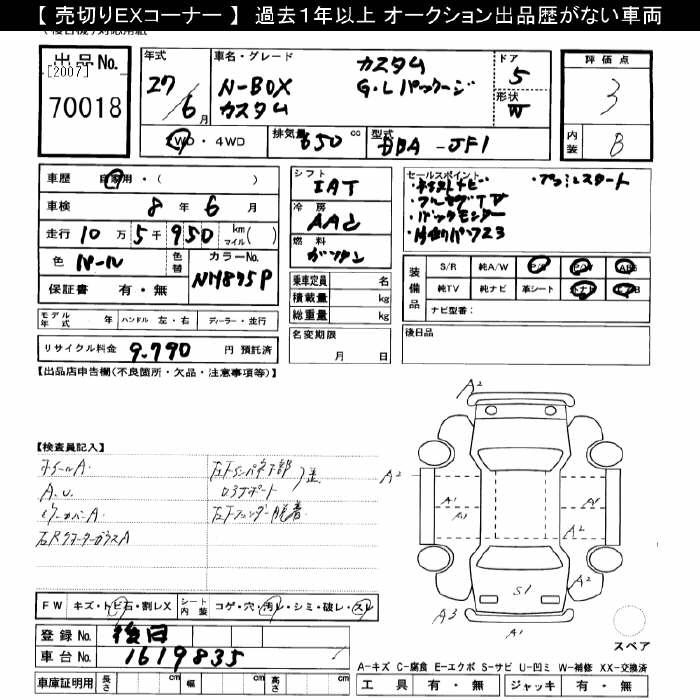 【 売切りEXコーナー 】 過去1年以上 オークション出品歴がない車両
出品No.
[2007]
70018
年式
27/6月
車名・グレード
N-BOX カスタム
カスタム G・Lパッケージ
ドア
5
形状
W
評価点
3
内装
B
2WD・4WD
排気量 650 cc
型式 DBA - JF1
車歴 自家用・( )
車検 8 年 6 月
走行 10 万 5 千 950 km マイル( )
色 パール
色替
カラーNo. NH875P
保証書 有・無
シフト
IAT
冷房
AAC
燃料
ガソリン
乗車定員 名
積載量 kg
総重量 kg
名変期限
月 日
セールスポイント
・プッシュスタート
・バックモニター
装備品
S/R 純A/W P/S P/W ABS
純TV 純ナビ 革シート エアB
ナビ型番:
後日品
モデル年式 年 ハンドル 左・右 ディーラー・並行
リサイクル料金 9,790 円 預託済
【出品店申告欄(不良箇所・欠品・注意事項等)】
【検査員記入】
ホイールA.
A.U.
ミラーカバーA
右Rクォーターガラス A
左Fインパネ下部
左Fフェンダー脱着
A2
A2
A1
A1
A1
A2
S1
A2
A3
A1
FW キズ・トビ石・割レX
シート内装 コゲ・穴・汚レ・シミ・破レ・スレ
登録No. 後日
車台No. 1619835
車庫証明用 長さ cm 幅 cm 高さ cm
スペア
A-キズ C-腐食 E-エクボ S-サビ U-凹ミ W-補修 XX-交換済
工具 有・無 ジャッキ 有・無